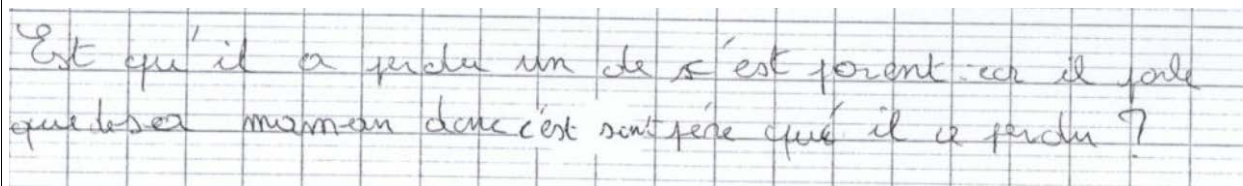 Est qu'il a perdu un de s'est parent car il parle
que de sa maman donc c'est sont père qué il a perdu ?